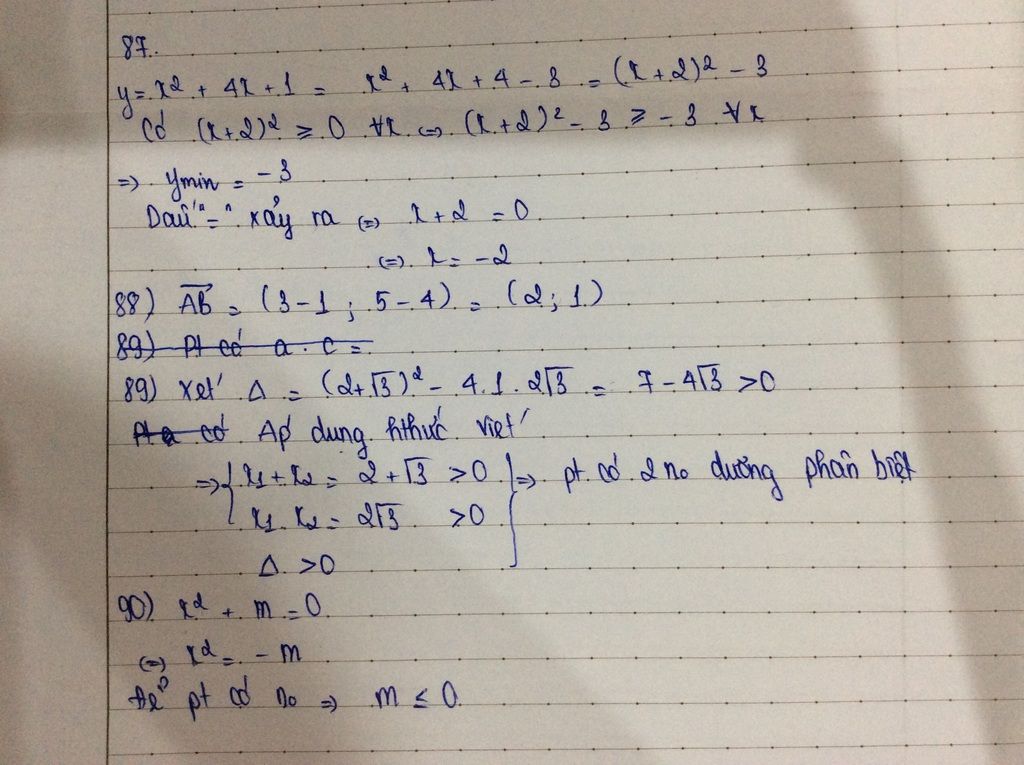 87.
y = x² + 4x + 1 = x² + 4x + 4 - 3 = (x+2)² - 3
Có (x+2)² ≥ 0 ∀x ⇔ (x+2)² - 3 ≥ -3 ∀x
=> ymin = -3
Dấu "=" xảy ra (=) x + 2 = 0
(=) x = -2
88) AB = (3-1 ; 5-4) = (2; 1)
89) Pt có a . c =
89) Xét Δ = (2+√3)² - 4.1.2√3 = 7 - 4√3 > 0
Pt có Áp dụng hthức Viét
=> { x1 + x2 = 2 + √3 > 0 } => pt có 2 no dương phân biệt
x1 . x2 = 2√3 > 0
Δ > 0
90) x² + m = 0
(=) x² = - m
Để pt có no => m ≤ 0.